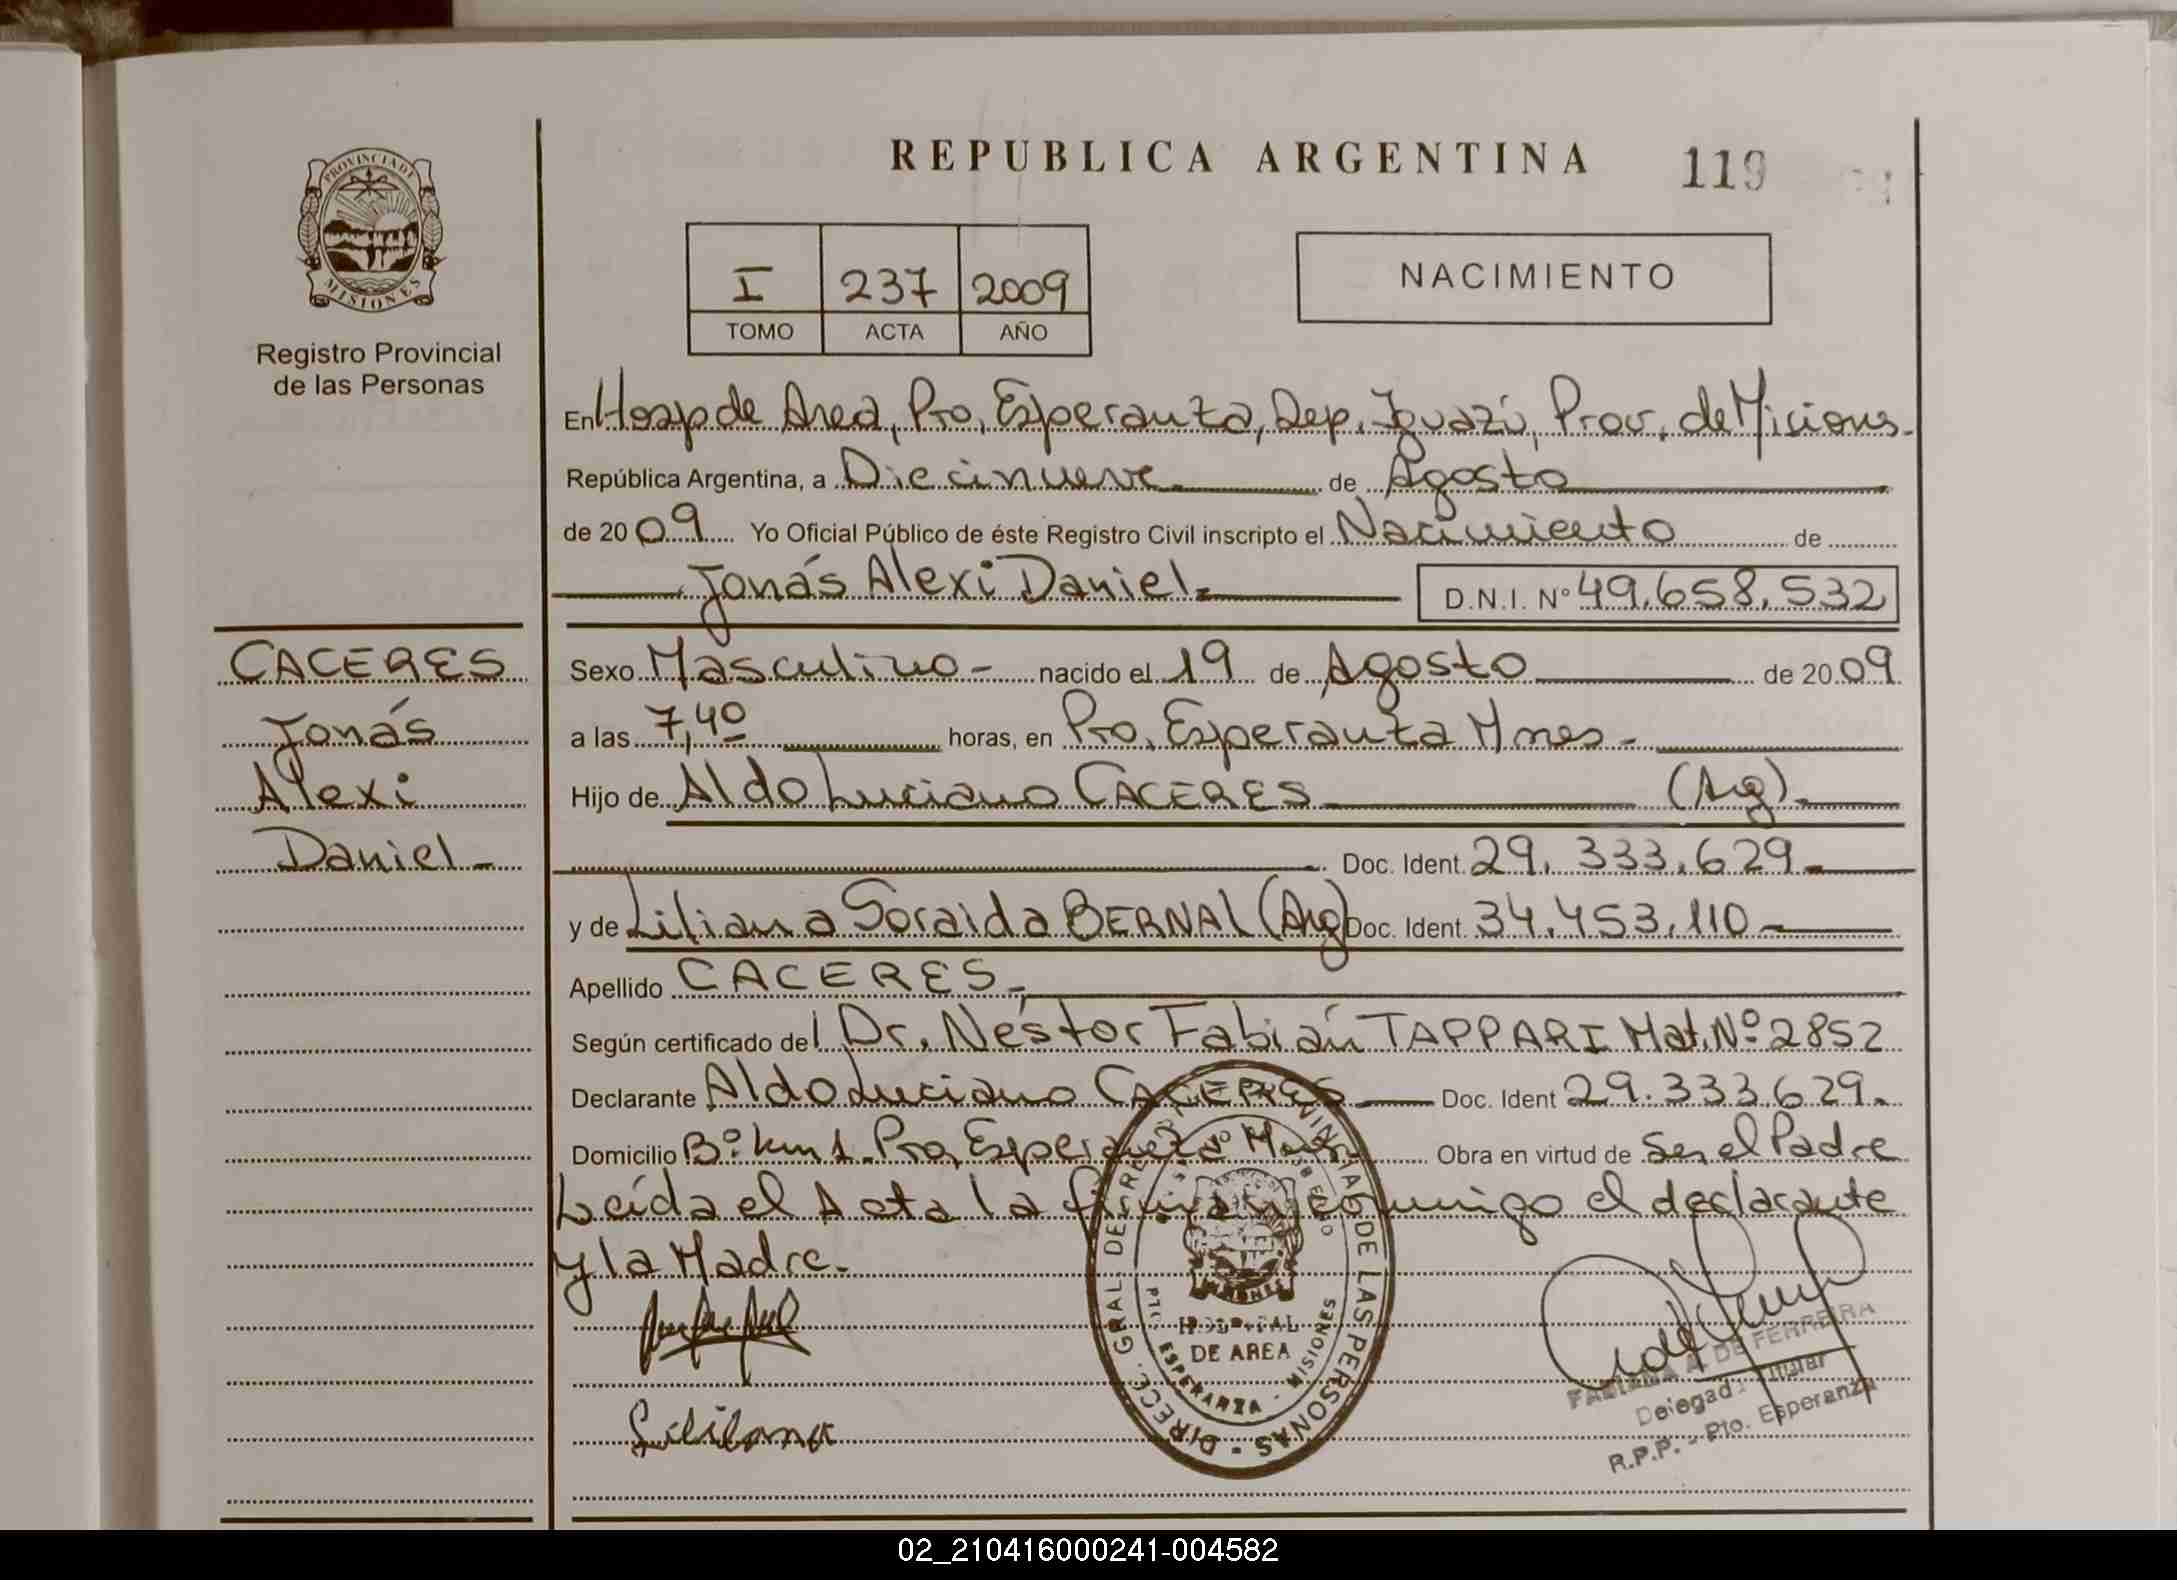 REPUBLICA ARGENTINA 119
PROVINCIA DE
MISIONES
Registro Provincial
de las Personas
I 237 2009
TOMO ACTA AÑO
NACIMIENTO
En Hosp de Area, Pto, Esperanza, Dep. Iguazú, Prov. de Misions.
República Argentina, a Diecinueve de Agosto
de 2009 Yo Oficial Público de éste Registro Civil inscripto el Nacimiento de
Jonás Alexi Daniel D.N.I. Nº 49.658.532
CACERES
Jonás
Alexi
Daniel -
Sexo Masculino - nacido el 19 de Agosto de 2009
a las 7,40 horas, en Pto. Esperanza Mnes -
Hijo de Aldo Luciano CACERES (Arg).
Doc. Ident. 29.333.629 -
y de Liliana Soraida BERNAL (Arg) Doc. Ident. 34.453.110 -
Apellido CACERES -
Según certificado del Dr. Néstor Fabián TAPPARI Mat. Nº 2852
Declarante Aldo Luciano CACERES Doc. Ident 29.333.629.
Domicilio Bº km 1 - Pto, Esperanza Obra en virtud de Ser el Padre
Leída el Acta la firman conmigo el declarante
y la Madre.
Liliana
DIRECC. GRAL. DE PROVINCIAL DE LAS PERSONAS -
MISIONES
HOSPITAL
DE AREA
PTO. ESPERANZA - MISIONES
FABIANA A. DE FERREIRA
Delegada Titular
R.P.P. - Pto. Esperanza
02_210416000241-004582